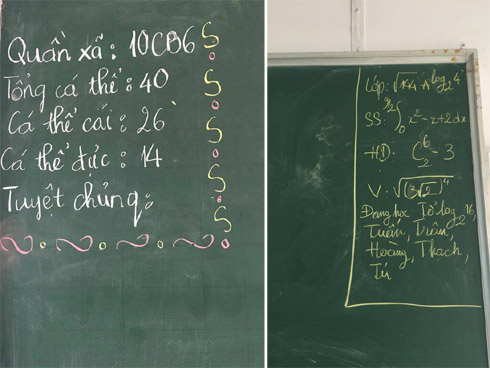 Quần xã: 10CB6
Tổng cá thể: 40
Cá thể cái: 26
Cá thể đực: 14
Tuyệt chủng:
Lớp:
SS: ∫ x² - x + 2 dx
HD: C - 3
V: √(3√2)⁴
Đang học Tổ log₂16,
Tuấn, Trân
Hoàng, Thạch,
Tú